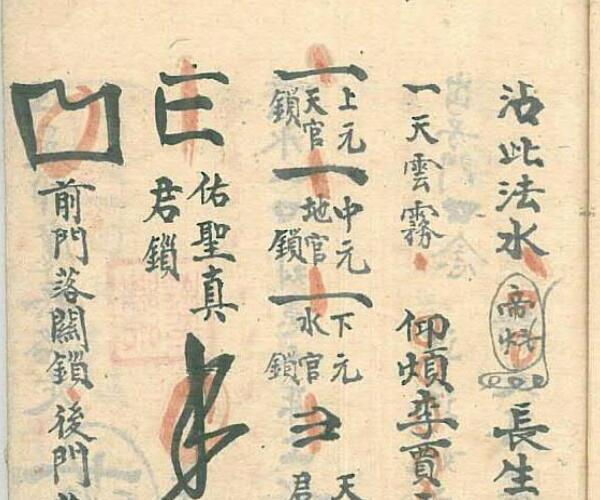 沾此法水 長生
一天雲霧 仰煩李賈
一上元天官鎖 一中元地官鎖 一下元水官鎖 天 君
佑聖真君鎖
前門落關鎖後門